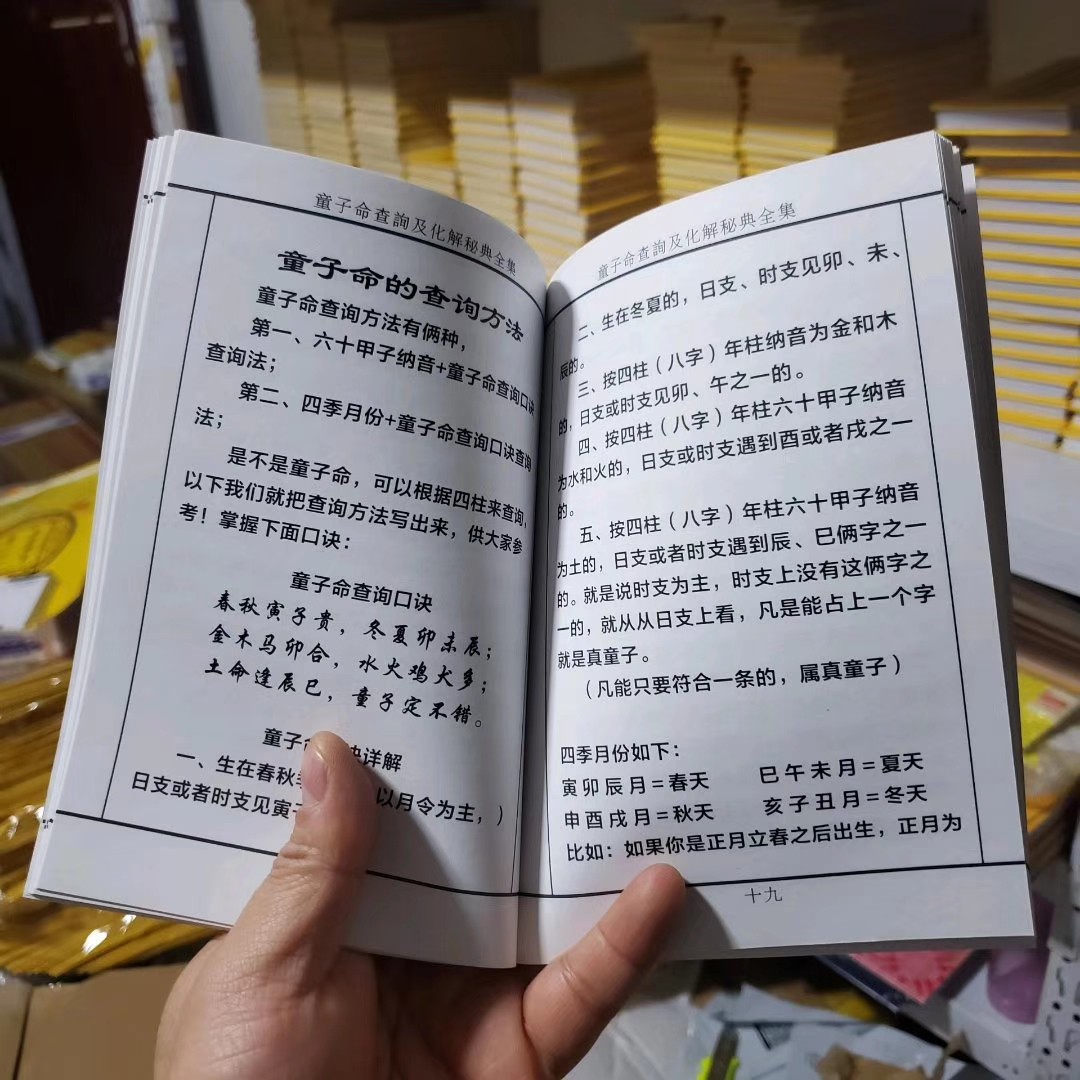 童子命查詢及化解秘典全集
童子命的查询方法
童子命查询方法有俩种，
第一、六十甲子纳音+童子命查询口诀
查询法；
第二、四季月份+童子命查询口诀查询
法；
是不是童子命，可以根据四柱来查询，
以下我们就把查询方法写出来，供大家参
考！掌握下面口诀：
童子命查询口诀
春秋寅子贵，冬夏卯未辰；
金木马卯合，水火鸡犬多；
土命逢辰巳，童子定不错。
童子命 诀详解
一、生在春秋 以月令为主，）
日支或者时支见寅
童子命查詢及化解秘典全集
二、生在冬夏的，日支、时支见卯、未、
辰的。
三、按四柱（八字）年柱纳音为金和木
的，日支或时支见卯、午之一的。
四、按四柱（八字）年柱六十甲子纳音
为水和火的，日支或时支遇到酉或者戌之一
的。
五、按四柱（八字）年柱六十甲子纳音
为土的，日支或者时支遇到辰、巳俩字之一
的。就是说时支为主，时支上没有这俩字之
一的，就从从日支上看，凡是能占上一个字
就是真童子。
（凡能只要符合一条的，属真童子）
四季月份如下：
寅卯辰月=春天 巳午未月=夏天
申酉戌月=秋天 亥子丑月=冬天
比如：如果你是正月立春之后出生，正月为
十九